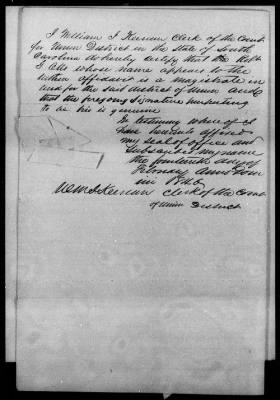 I William I Keenan Clerk of the Court
for Union District in the State of South
Carolina do hereby certify that the Robt
I. whose name appears to the
within affidavit is a magistrate in
and for the said district of Union and
that the foregoing Signature purporting
to be his is genuine
In testimony whereof I
have hereunto affixed
my seal of office and
Subscribed my name
the fourteenth day of
February Anno Dom
ini 1846
Wm I Keenan Clerk of the Court
of Union District